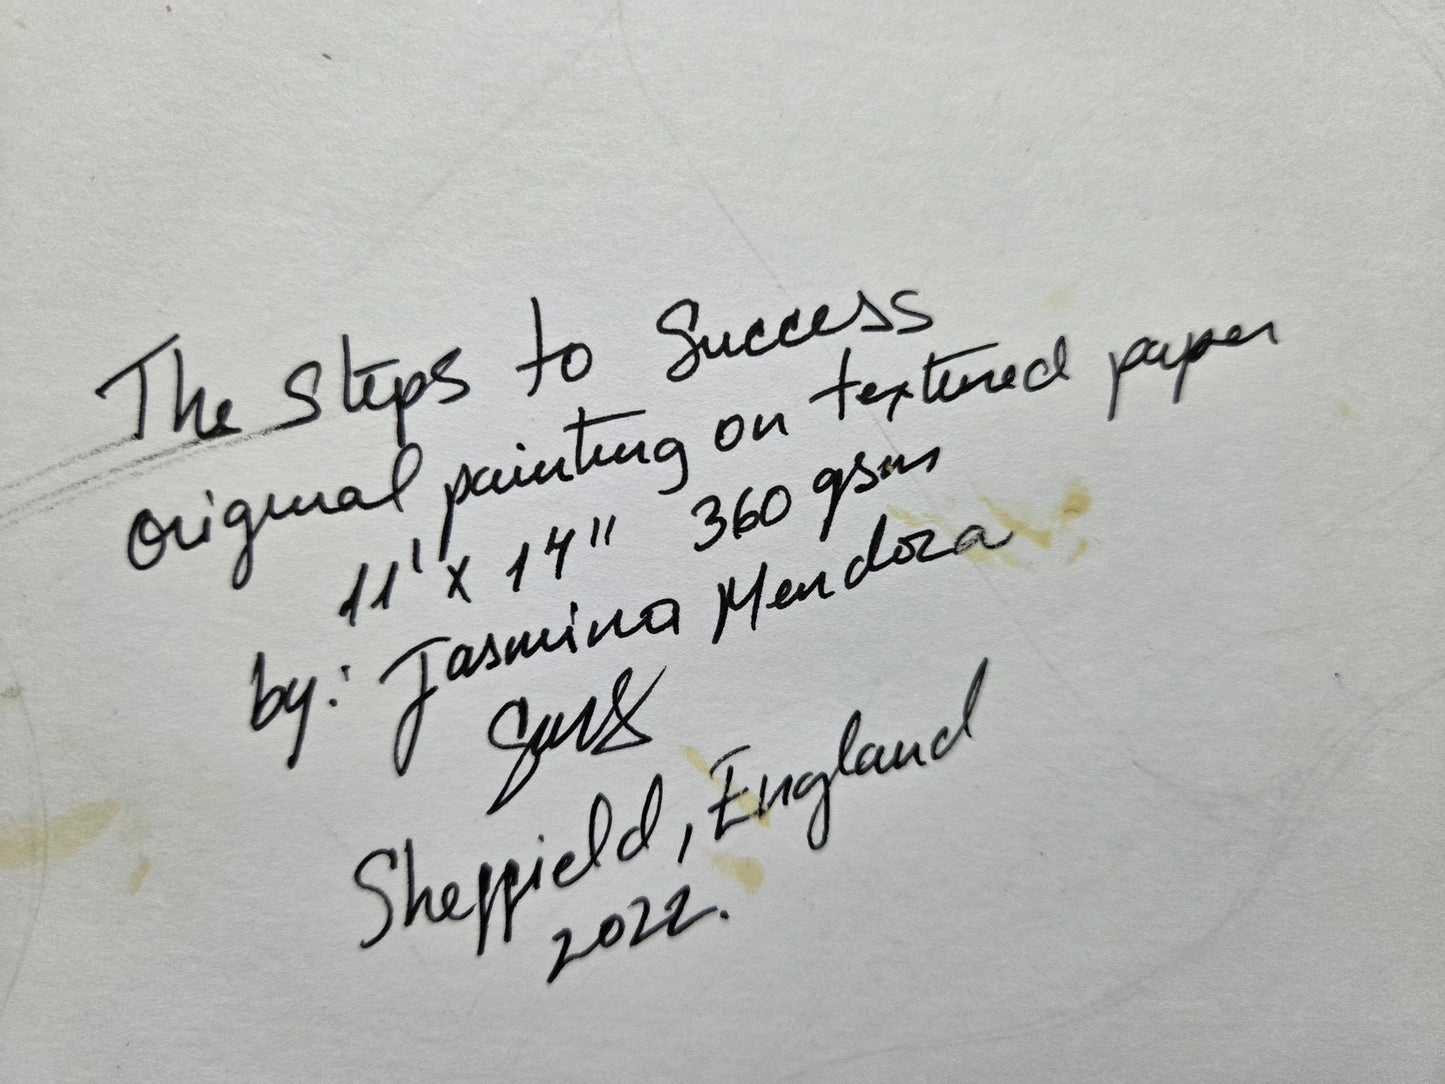 The Steps to Success
original painting on textured paper
11' x 14" 360 gsm
by: Jasmina Mendoza
Sheffield, England
2022.